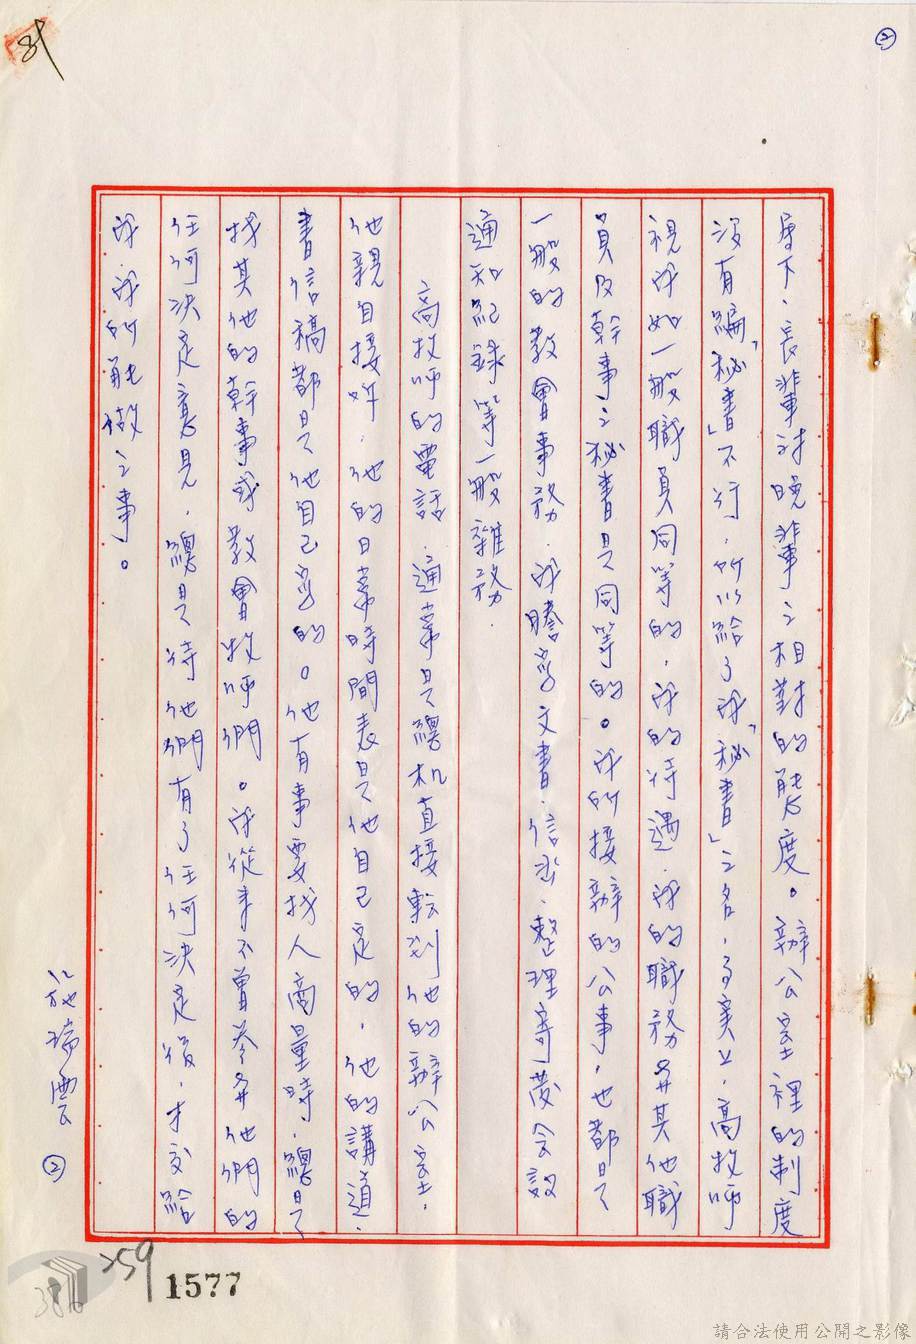 ②
81
層下、長輩对晚輩之相對的態度。辦公室裡的制度
沒有編「秘書」不行，所以給了我「秘書」之名，事实上，高牧师
視我如一般職員同等的，我的待遇、我的職務与其他職
員及幹事之秘書是同等的。我所接辦的公事，也都是
一般的教會事務，我謄写文書、信函、整理寄發会議
通知紀録等一般雜務．
高牧师的電話，通常是總机直接転到他的辦公室．
他親自接听，他的日常時間表是他自己定的，他的講道．
書信稿都是他自己写的。他有事要找人商量時，總是
找其他的幹事或教會牧师們。我從来不曾参与他們的
任何決定意見，總是待他們有了任何決定後，才交給
我，我所能做之事。
施瑞雲 ②
259
1577
請合法使用公開之影像